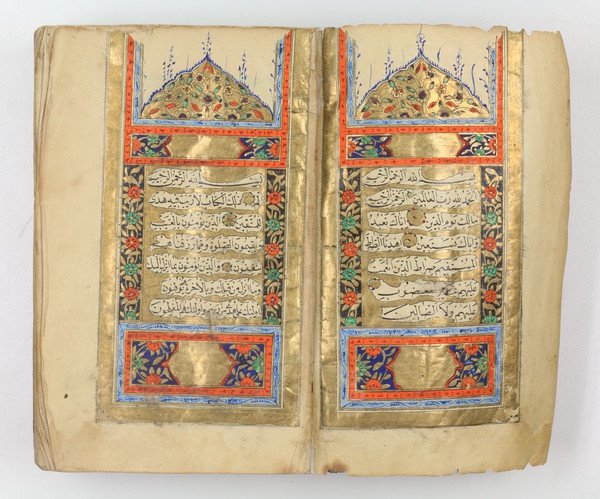 بسم الله الرحمن الرحيم
الحمد لله رب العالمين الرحمن الرحيم
مالك يوم الدين اياك نعبد
واياك نستعين اهدنا الصراط
المستقيم صراط الذين انعمت
عليهم غير المغضوب
عليهم ولا الضالين
بسم الله الرحمن الرحيم
الم ذلك الكتاب لا ريب فيه هدى
للمتقين الذين يؤمنون بالغيب
ويقيمون الصلوة ومما رزقناهم
ينفقون والذين يؤمنون بما انزل اليك
وما انزل من قبلك وبالاخرة هم يوقنون
اولئك على هدى من ربهم واولئك هم المفلحون